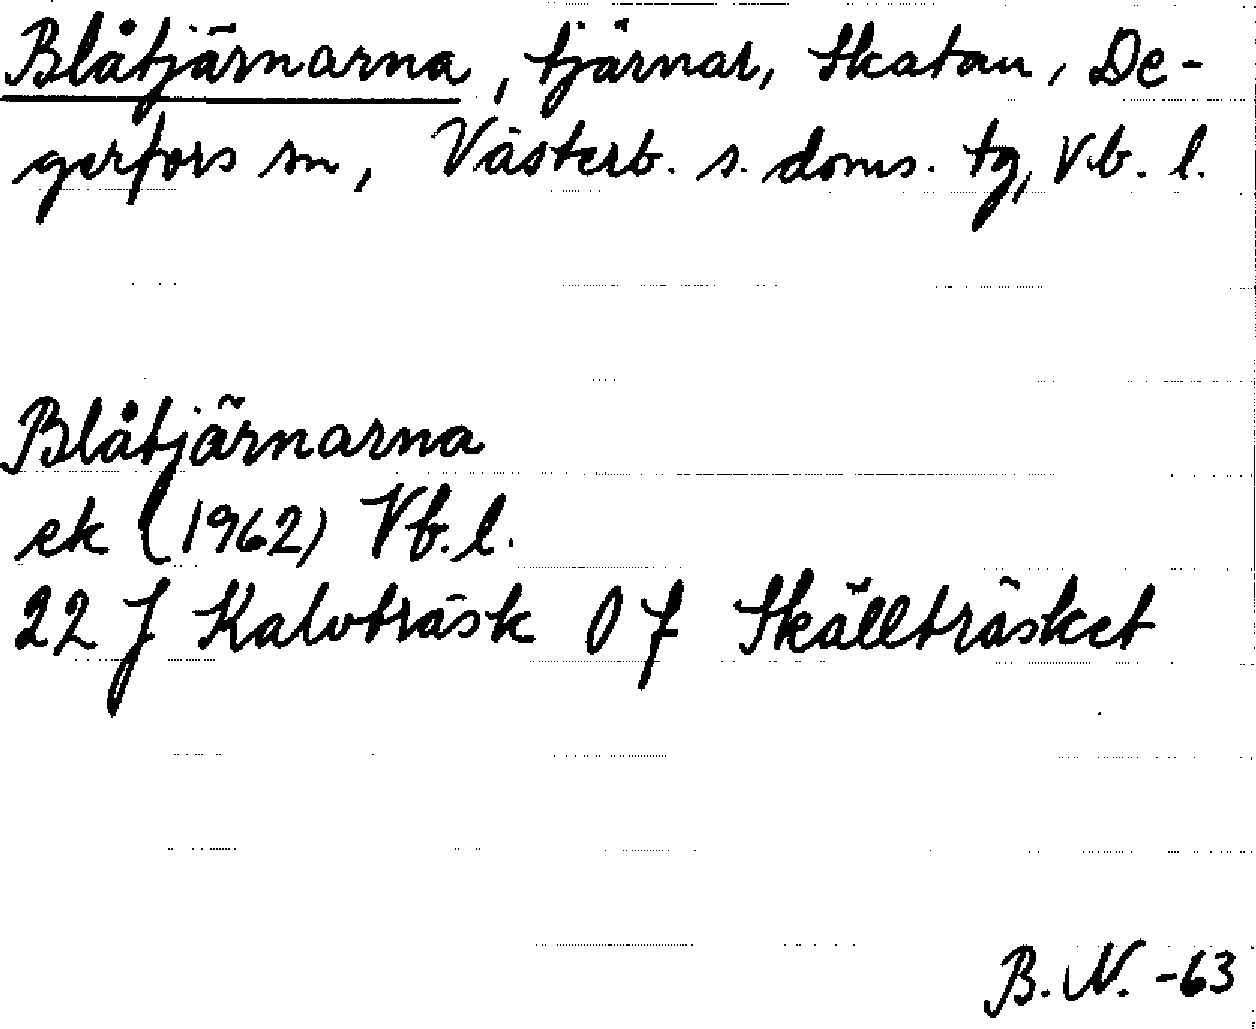 Blåtjärnarna, tjärnar, Skatan, De-
gerfors sn, Västerb. s. doms. tg, Vb. l.
Blåtjärnarna
ek (1962) Vb. l.
22 J Kalvträsk 0 f Skällträsket
B. N. -63